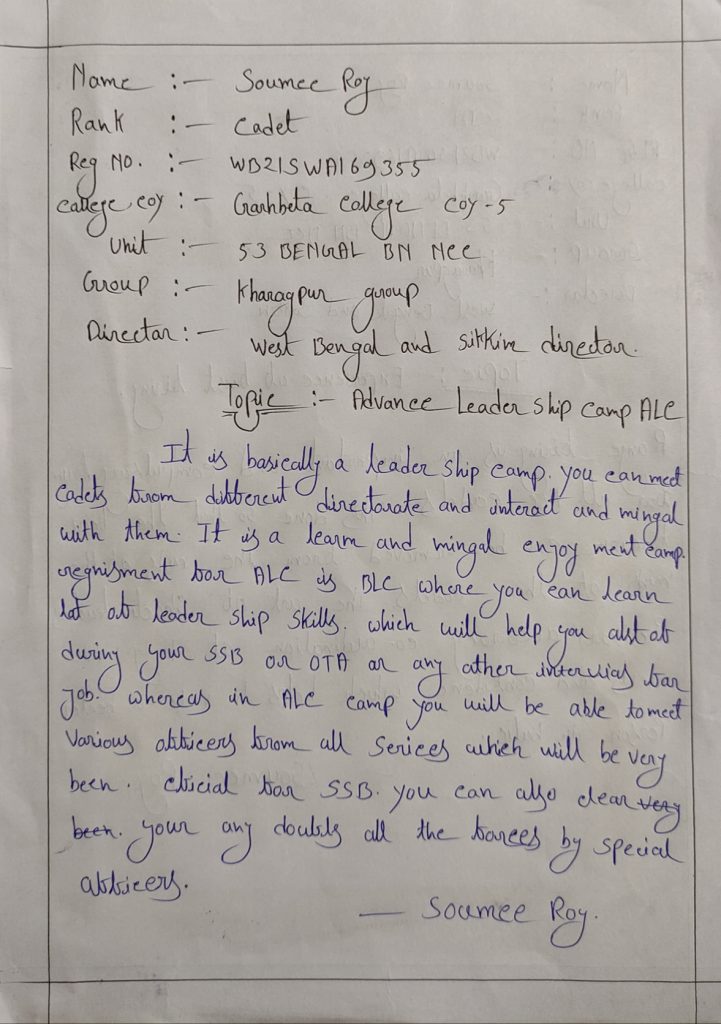 Name :- Soumee Roy
Rank :- Cadet
Reg No. :- WB21SWA169355
College coy :- Garhbeta College coy-5
Unit :- 53 BENGAL BN NCC
Group :- Kharagpur group
Director :- West Bengal and Sikkim director.
Topic :- Advance Leader ship camp ALC
It is basically a leader ship camp. you can meet
cadets from different directorate and interact and mingal
with them. It is a learn and mingal enjoy ment camp.
for ALC is BLC where you can learn
lot of leader ship skills. which will help you
during your SSB or OTA or any other for
job. whereas in ALC camp you will be able to meet
Various officers from all Serices which will be very
been. for SSB. you can also clear very
been. your any doubts all the forces by special
officers.
— Soumee Roy.